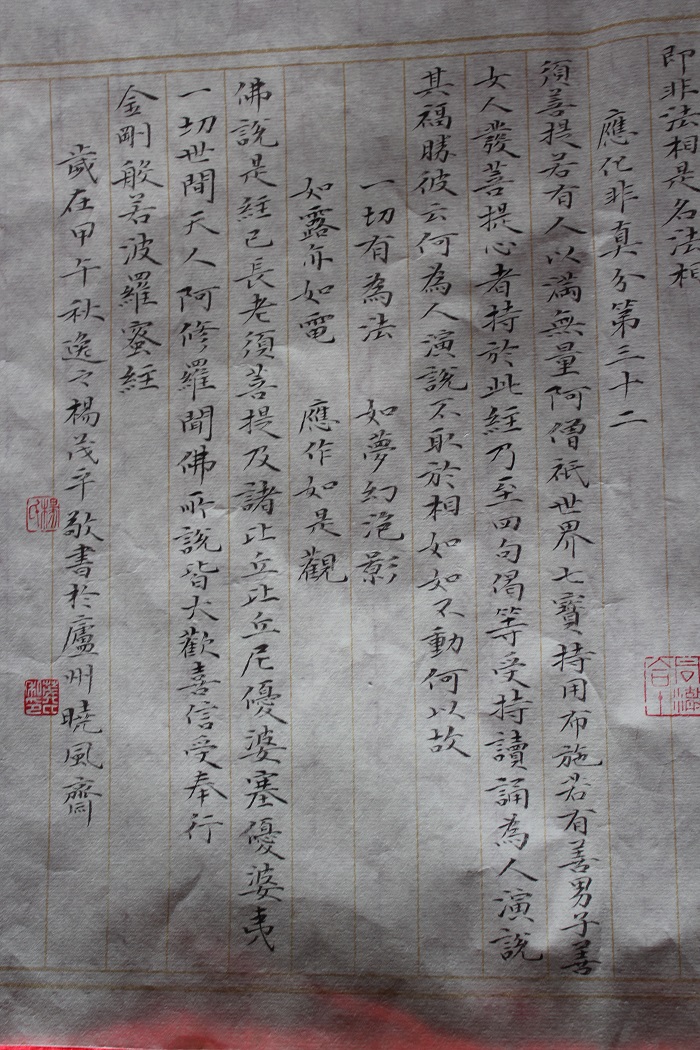 即非法相是名法相
應化非真分第三十二
須菩提若有人以滿無量阿僧祇世界七寶持用布施若有善男子善
女人發菩提心者持於此經乃至四句偈等受持讀誦為人演說
其福勝彼云何為人演說不取於相如如不動何以故
一切有為法 如夢幻泡影
如露亦如電 應作如是觀
佛說是經已長老須菩提及諸比丘比丘尼優婆塞優婆夷
一切世間天人阿修羅聞佛所說皆大歡喜信受奉行
金剛般若波羅蜜經
歲在甲午秋逸之楊茂平敬書於廬州曉風齋
楊氏